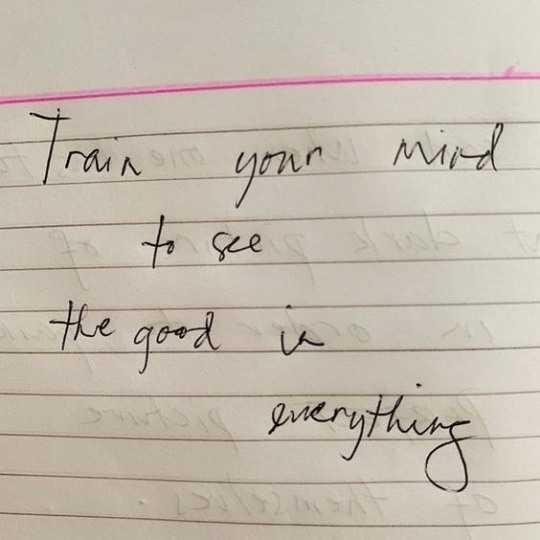 Train your mind
to see
the good in
everything